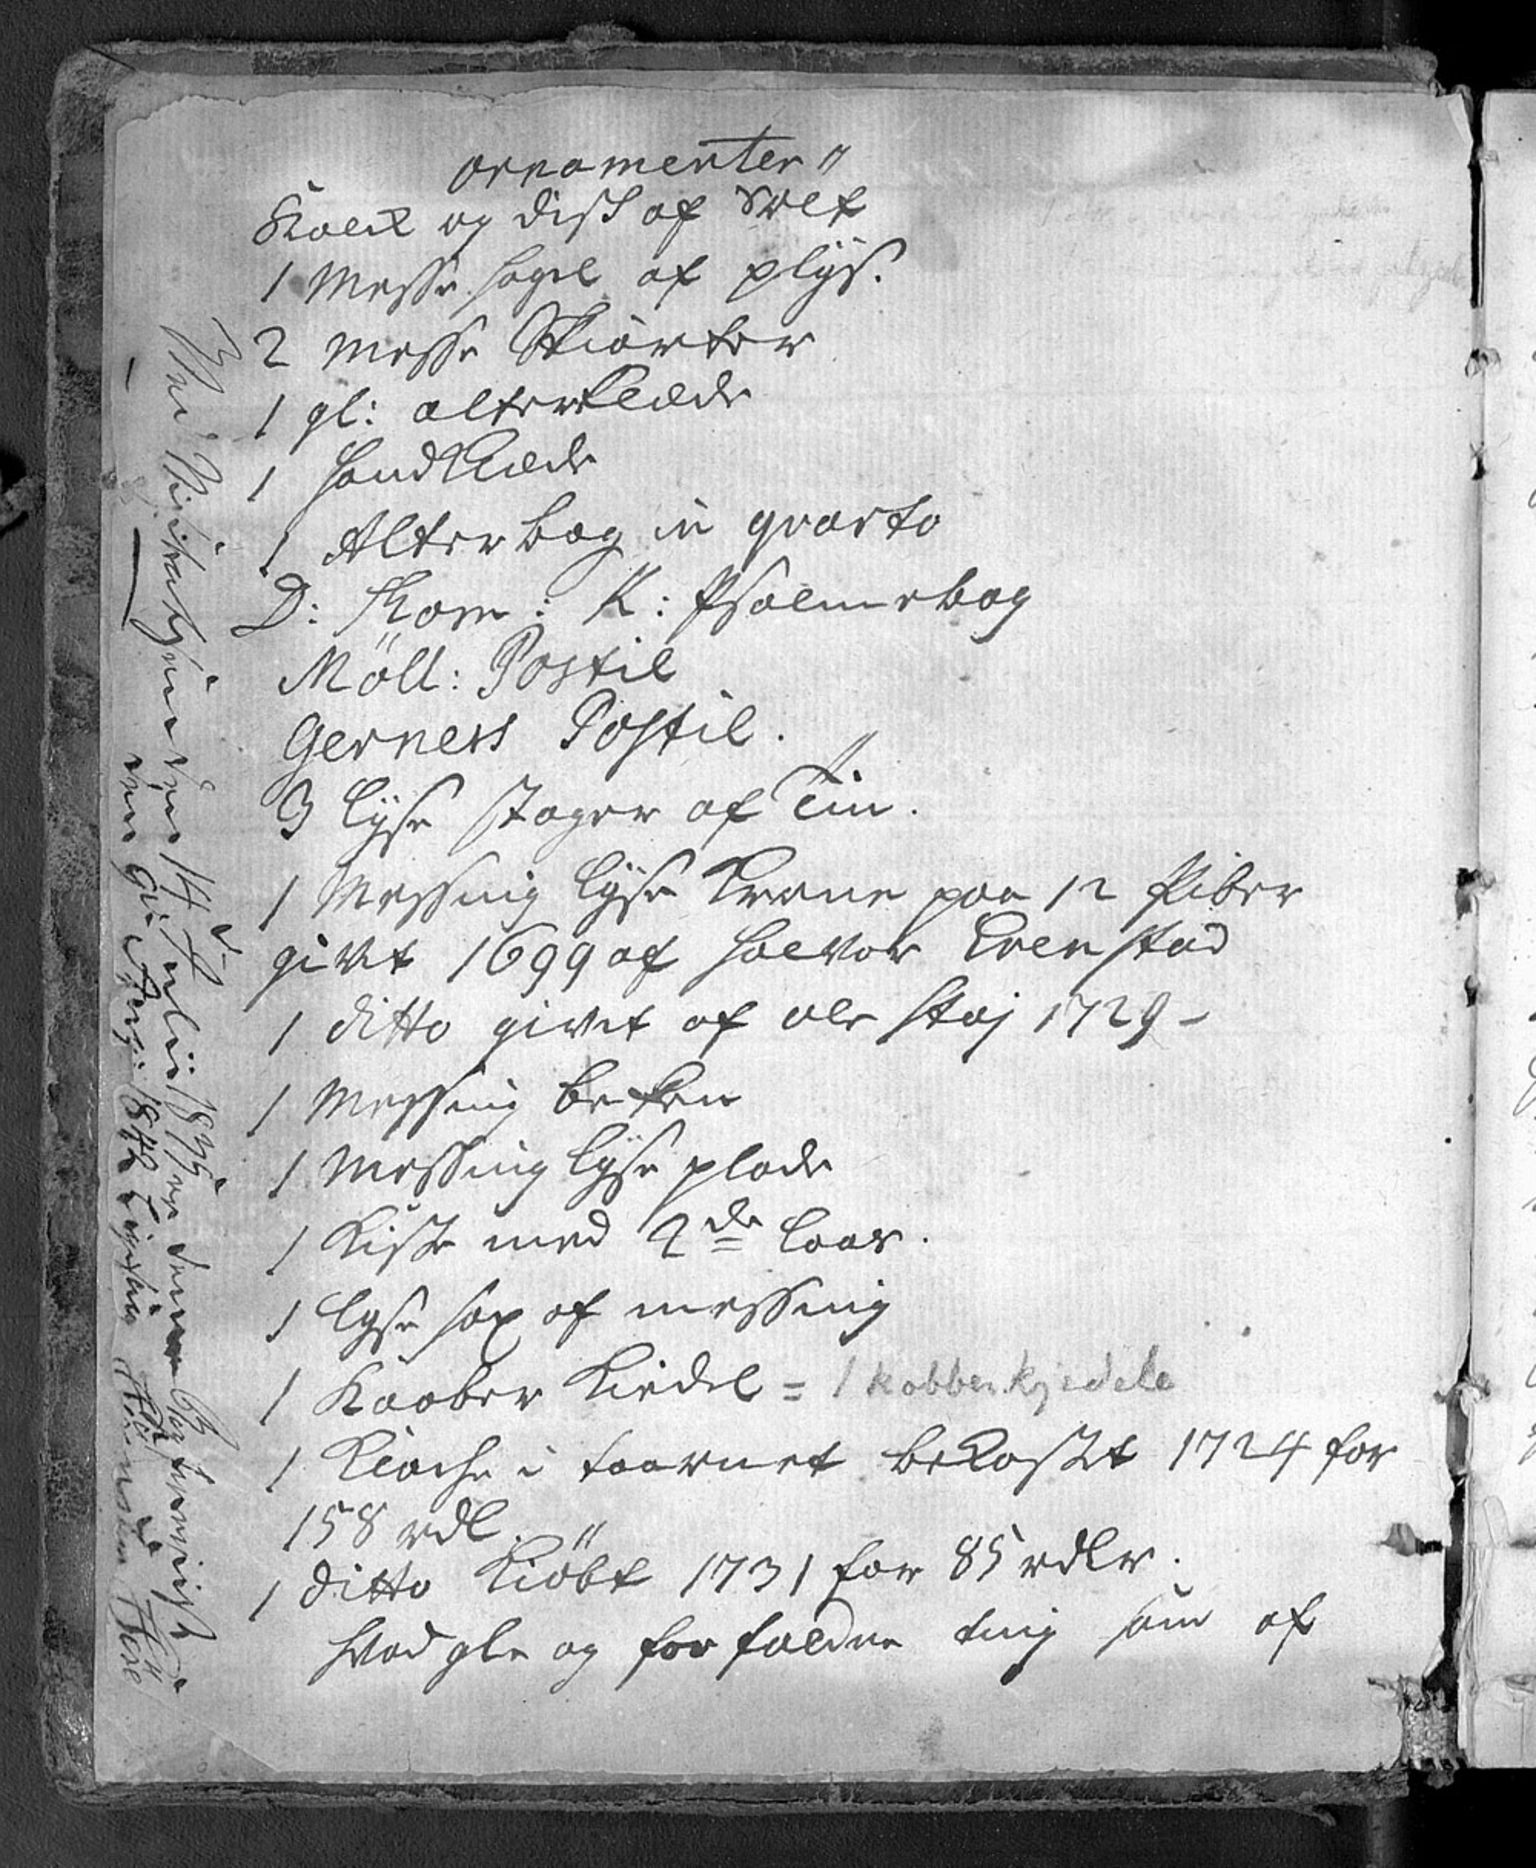 ornamenter
Kalck og disk af Sølf
1 Messe hagel af plÿs.
2 messe Skiorter
1 gl: alterklæde
1 Handklæde
1 Alterbog in qvarto
D: Kom: K: Psalmebog
Möll: Postil
Gerners Postil.
3 lÿse stager af Tin.
1 Messing lÿse Krone paa 12 Piber
givet 1699 af Halvor Evenstad
1 ditto givet af Ole Staj 1729 –
1 Messing bekken
1 Messing lÿse plade
1 Kiste med 2de laas.
1 lyse sax af messing
1 Kaaber Kiedel = 1 kobberkjedele
1 Klocke i taarnet bekostet 1724 for
158 rdl.
1 ditto Kiöbt 1731 for 85 rdlr.
hvad gle og forfaldne ting som af
Ved Visitatsen den 14 Julii 1835 er denne
den 9de Aug: 1842